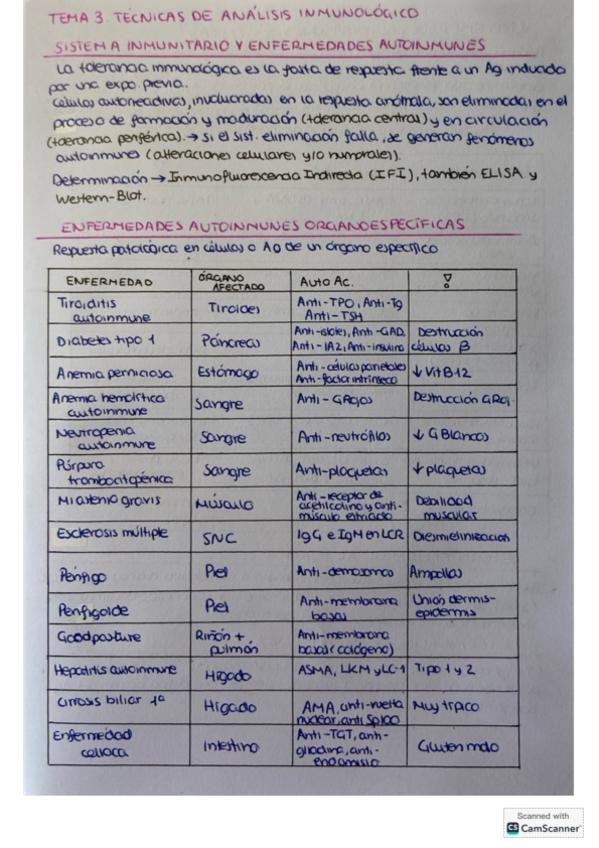 TEMA 3. TÉCNICAS DE ANÁLISIS INMUNOLÓGICO
SISTEMA INMUNITARIO Y ENFERMEDADES AUTOINMUNES
La tolerancia inmunológica es la falta de respuesta frente a un Ag inducida
por una expo. previa.
Células autoreactivas, involucradas en la respuesta anómala, son eliminadas en el
proceso de formación y maduración (tolerancia central) y en circulación
(tolerancia periférica). → Si el sist. eliminación falla, se generan fenómenos
autoinmunes (alteraciones celulares y/o humorales).
Determinación → Inmunofluorescencia Indirecta (IFI), también ELISA y
Western-Blot.
ENFERMEDADES AUTOINMUNES ORGANOESPECÍFICAS
Respuesta patológica en células o Ag de un órgano específico
ENFERMEDAD ÓRGANO AFECTADO Auto Ac. !
Tiroiditis autoinmune Tiroides Anti-TPO, Anti-Tg Anti-TSH
Diabetes tipo 1 Páncreas Anti-islotes, Anti-GAD, Anti-IA2, Anti-insulina Destrucción células β
Anemia perniciosa Estómago Anti-células parietales Anti-factor intrínseco ↓ Vit B12
Anemia hemolítica autoinmune Sangre Anti-GRojos Destrucción GRoj.
Neutropenia autoinmune Sangre Anti-neutrófilos ↓ GBlancos
Púrpura trombocitopénica Sangre Anti-plaquetas ↓ plaquetas
Miastenia gravis Músculo Anti-receptor de acetilcolina y anti-músculo estriado Debilidad muscular
Esclerosis múltiple SNC IgG e IgM en LCR Desmielinización
Pénfigo Piel Anti-desmosomas Ampollas
Penfigoide Piel Anti-membrana basal Unión dermis-epidermis
Goodpasture Riñón + pulmón Anti-membrana basal (colágeno)
Hepatitis autoinmune Hígado ASMA, LKM y LC-1 Tipo 1 y 2
Cirrosis biliar 1ª Hígado AMA, anti-nuclear, anti Sp100 Muy típico
Enfermedad celíaca Intestino Anti-TGT, anti-gliadina, anti-endomisio Gluten malo
Scanned with
CS CamScanner